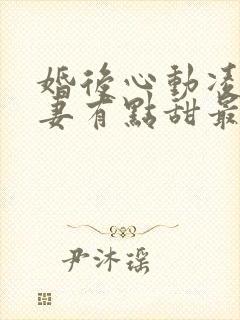 婚後心動凌
妻有點甜最
尹沐瑶